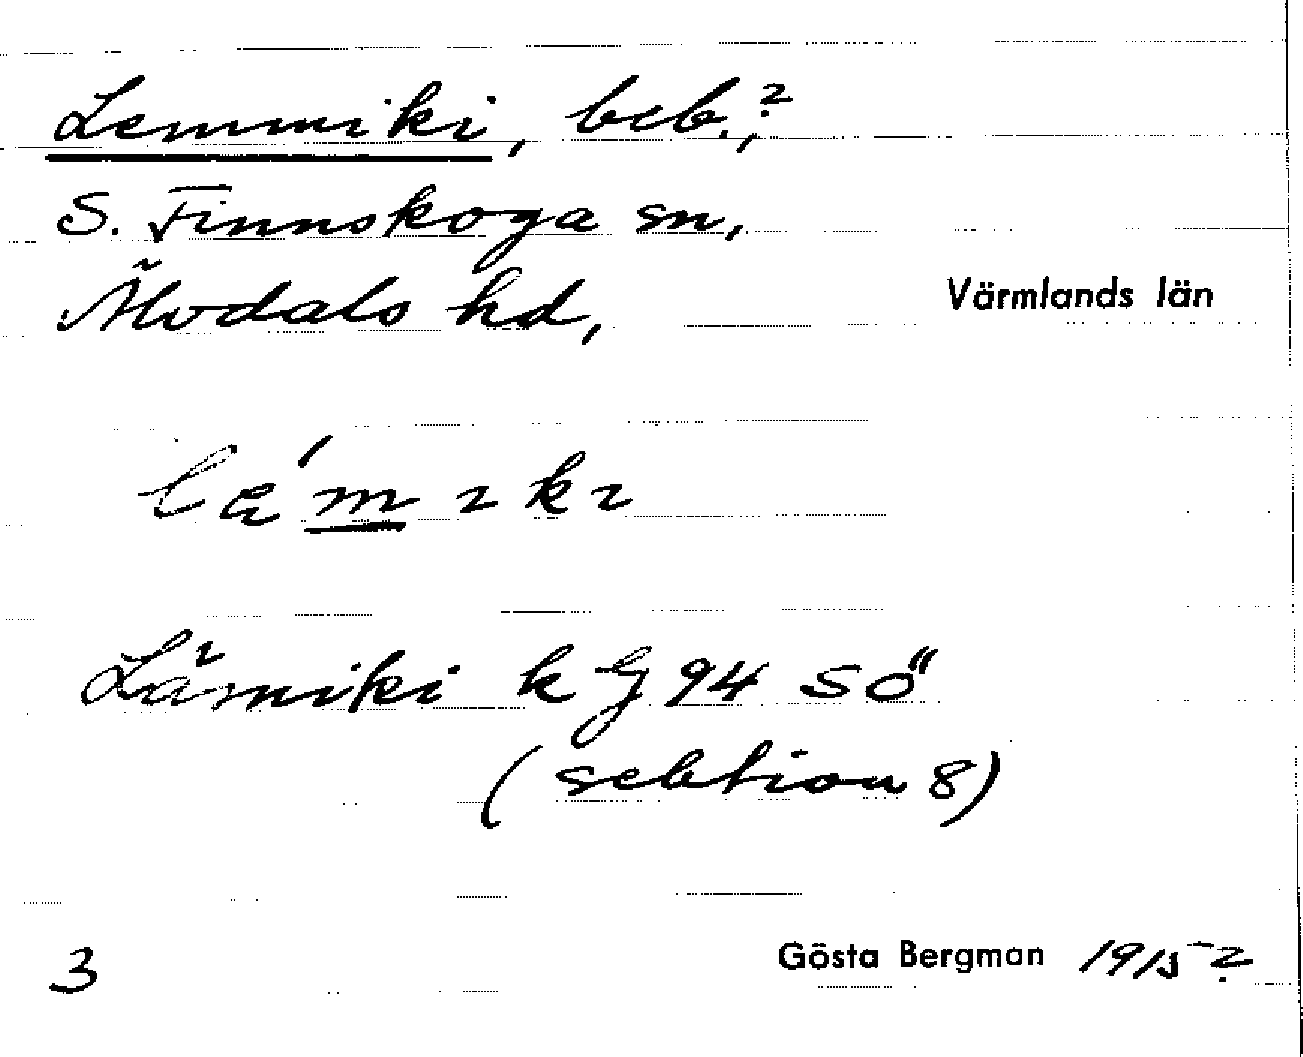 Lemmiki, beb.?,
S. Finnskoga sn,
Älvdals hd, Värmlands län
Lämiki k G 94 SÖ
(sektion 8)
3 Gösta Bergman 1915?